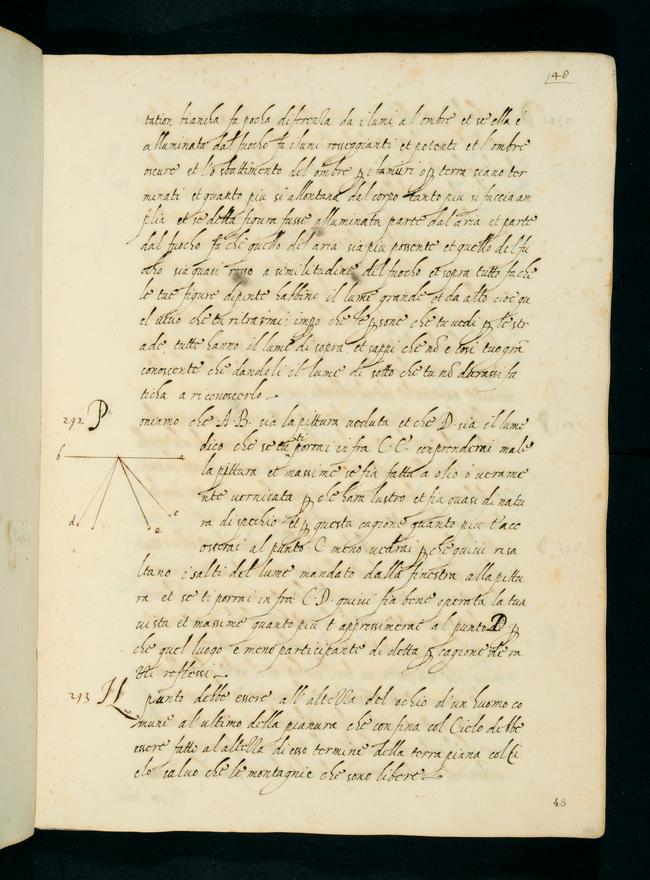 148
tation biancha fa pocha diferenza da i lumi a l'ombre et se ella è
alluminata dal fuocho fa i lumi rosseggianti et potenti et l'ombre
oscure et lo sbattimento del ombre p i muri o p terra siano ter
minati et quanto piu si allontana dal corpo tanto piu si faccia am
plia et se detta figura fusse alluminata parte dal aria et parte
dal fuocho fa che quello del aria sia piu possente et quello del fu
ocho sia quasi rosso a similitudine del fuocho et sopra tutto fa che
le tue figure dipinte habbino il lume grande et da alto cioe qu
el uiuo che tu ritrarai; impo che le psone che tu uedi p le str
ade, tutte hanno il lume di sopra, et sappi che nō e cosi tuo grā
conoscente che dandoli il lume di sotto che tu nō durassi fa
ticha a riconoscerlo
292 Poniamo che .A.B. sia la pittura ueduta et che D. sia il lume
dico che se tu ti porrai infra C.E. comprenderai male
b a
la pittura et massime se fia fatta a olio o uerame
nte uernicata p che hara lustro et fia quasi di natu
d c
ra di specchio et p questa cagione quanto piu t'acc
e
osterai al punto C meno uedrai p che quiui risa
ltano i salti del lume mandato dalla finestra alla pittu
ra et se ti porrai infra C.D. quiui fia bene operata la tua
uista et massime quanto piu t'appressimerai al punto D p
che quel luogo e meno participante di detta p cagione de ra
zzi reflessi
293 Il punto debbe essere all'altezza del ochio d'un huomo co
mune al ultimo della pianura che confina col Cielo debbe
essere fatto al altezza di esso termine della terra piana col Ci
elo saluo che le montagnie che sono libere
48